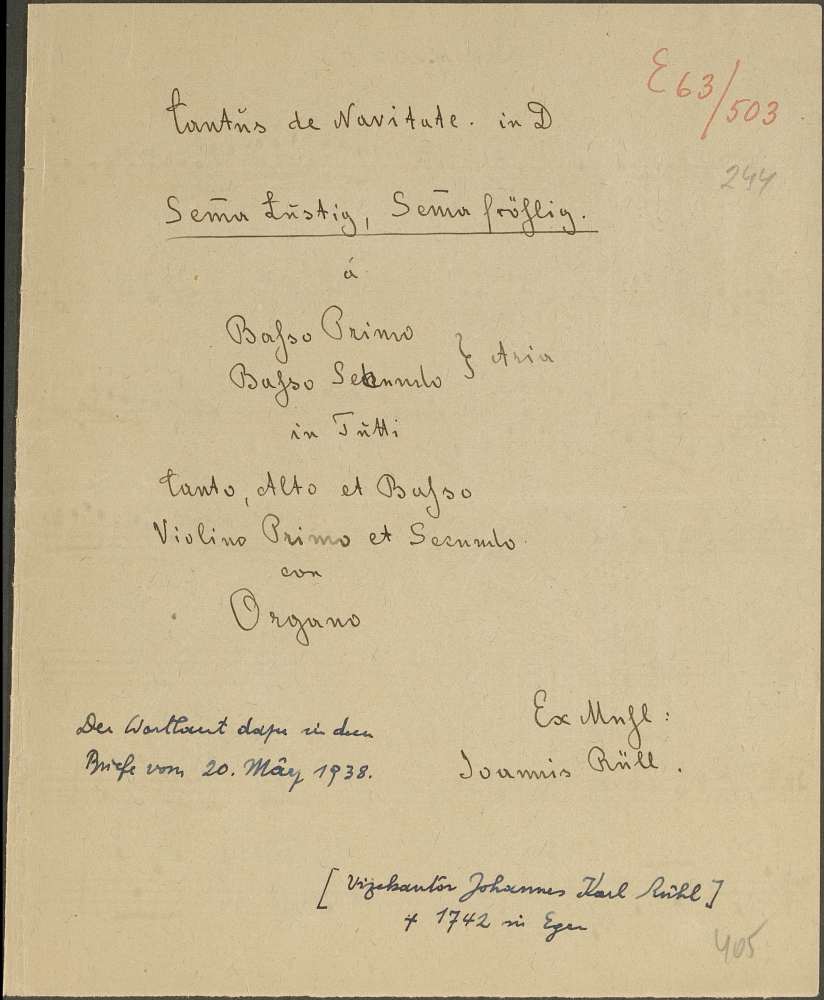 E 63/503
244
Cantŭs de Navitate. in D
Sem̄a Lŭstig, Sem̄a fröhlig.
á
Baſso Primo
Baſso Secundo } Aria
in Tŭtti
Canto, Alto et Baſso
Violino Primo et Secundo
con
Organo
Der Wortlaut dazu in dem
Briefe vom 20. März 1938.
Ex Muſl:
Joannis Rüll.
[Vizekantor Johannes Karl Rühl]
+ 1742 in Eger
405